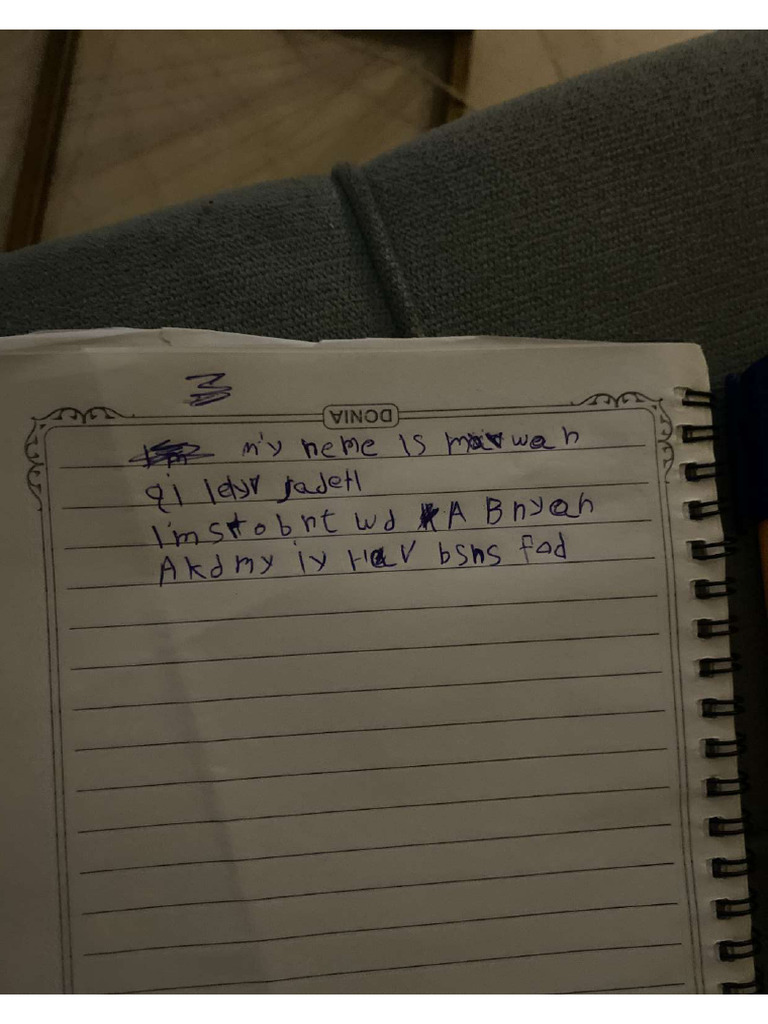 DONIA
my neme is marwan
qi leyr jadetl
I'm stobnt wd A Bnyan
Akdmy iy Hav bsns fod